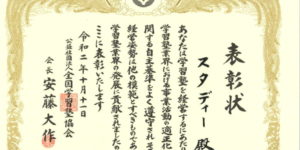 表彰状
スタディー 殿
あなたは学習塾を経営するにあたり
学習塾業界における事業活動の適正化に
関する自主基準をよく遵守され そ
経営姿勢は他の模範とすべきものであ
学習塾業界の発展に貢献されました
ここに表彰いたします
令和二年十月十一日
公益社団法人全国学習塾協会
会長 安藤大作